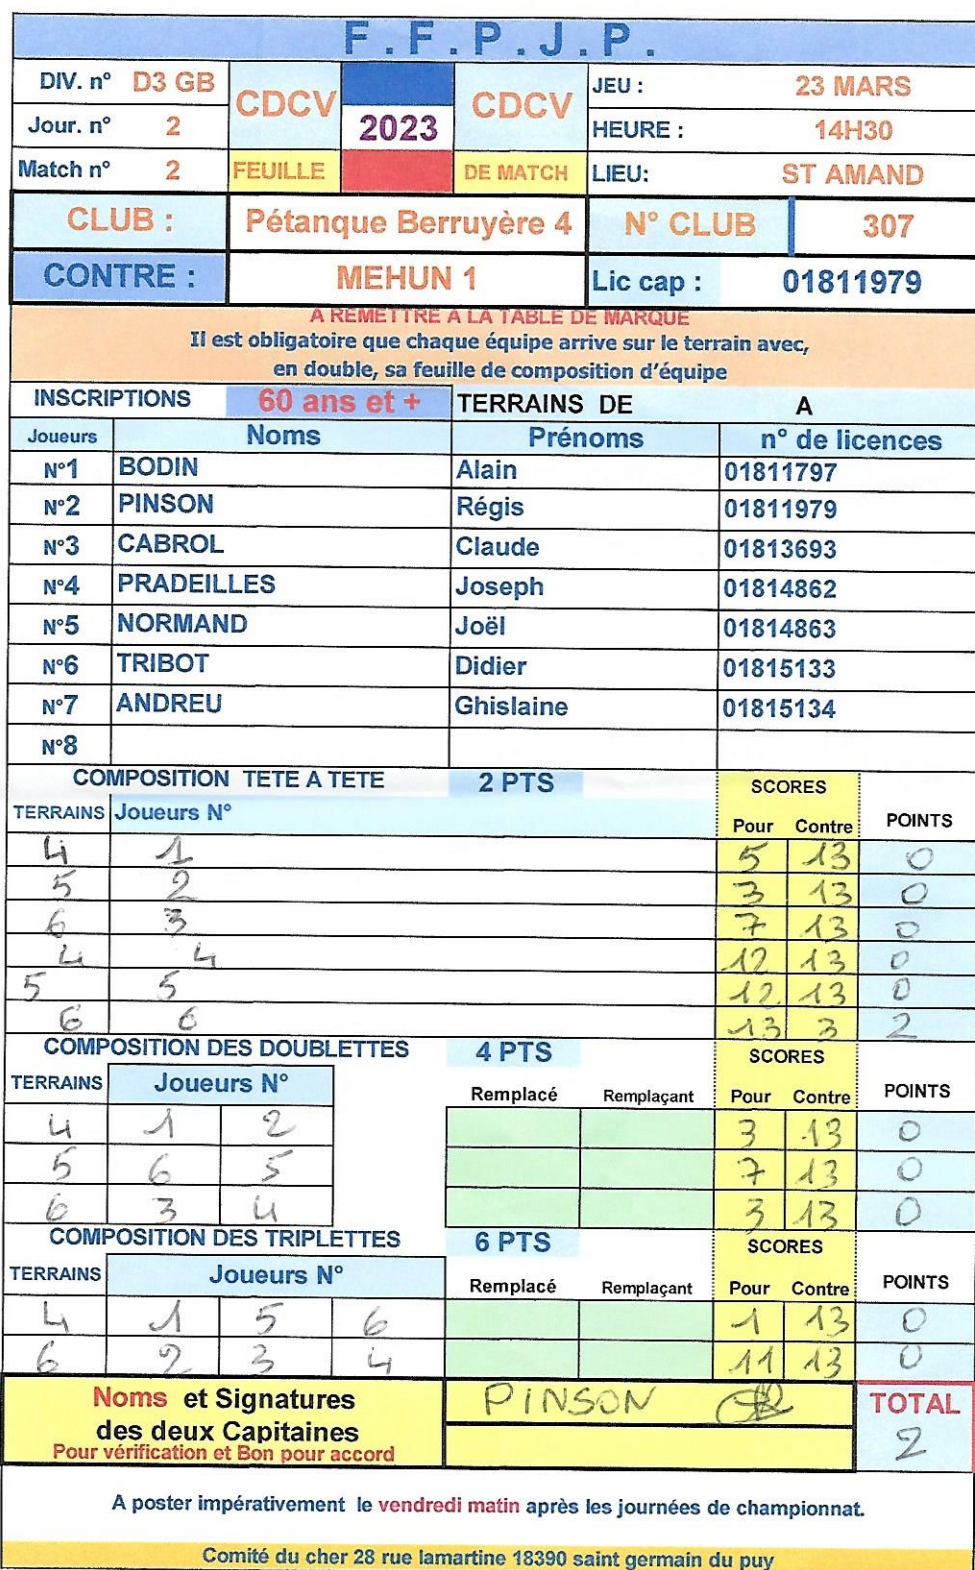 F.F.P.J.P.
DIV. n° D3 GB CDCV CDCV JEU : 23 MARS
Jour. n° 2 2023 HEURE : 14H30
Match n° 2 FEUILLE DE MATCH LIEU: ST AMAND
CLUB : Pétanque Berruyère 4 N° CLUB 307
CONTRE : MEHUN 1 Lic cap : 01811979
A REMETTRE A LA TABLE DE MARQUE
Il est obligatoire que chaque équipe arrive sur le terrain avec,
en double, sa feuille de composition d'équipe
INSCRIPTIONS 60 ans et + TERRAINS DE A
Joueurs Noms Prénoms n° de licences
N°1 BODIN Alain 01811797
N°2 PINSON Régis 01811979
N°3 CABROL Claude 01813693
N°4 PRADEILLES Joseph 01814862
N°5 NORMAND Joël 01814863
N°6 TRIBOT Didier 01815133
N°7 ANDREU Ghislaine 01815134
N°8
COMPOSITION TETE A TETE 2 PTS SCORES
TERRAINS Joueurs N° Pour Contre POINTS
4 1 5 13 0
5 2 3 13 0
6 3 7 13 0
4 4 12 13 0
5 5 12 13 0
6 6 13 3 2
COMPOSITION DES DOUBLETTES 4 PTS SCORES
TERRAINS Joueurs N° Remplacé Remplaçant Pour Contre POINTS
4 1 2 3 13 0
5 6 5 7 13 0
6 3 4 3 13 0
COMPOSITION DES TRIPLETTES 6 PTS SCORES
TERRAINS Joueurs N° Remplacé Remplaçant Pour Contre POINTS
4 1 5 6 1 13 0
6 2 3 4 11 13 0
Noms et Signatures PINSON TOTAL
des deux Capitaines 2
Pour vérification et Bon pour accord
A poster impérativement le vendredi matin après les journées de championnat.
Comité du cher 28 rue lamartine 18390 saint germain du puy